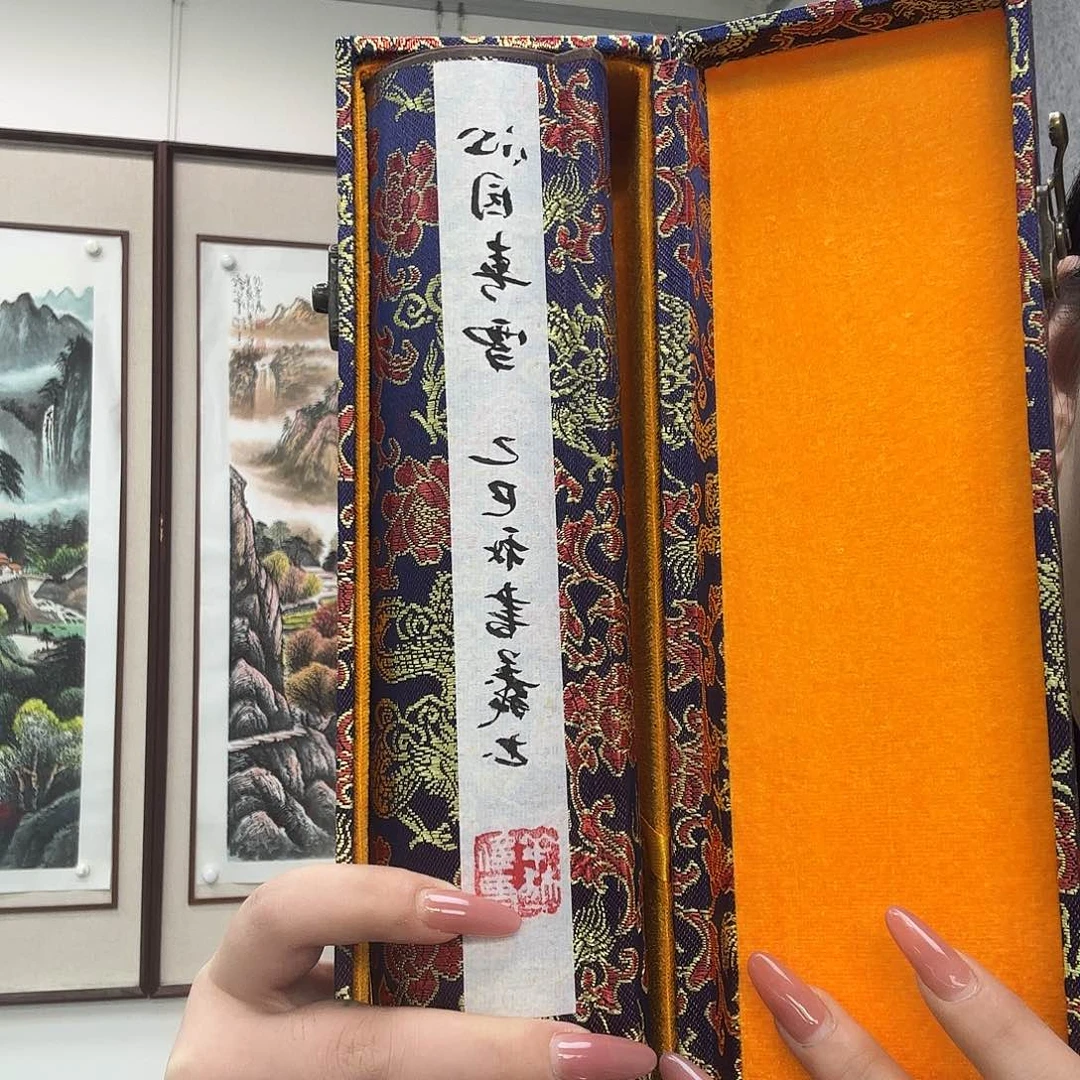 沁园春雪 乙巳秋書義书